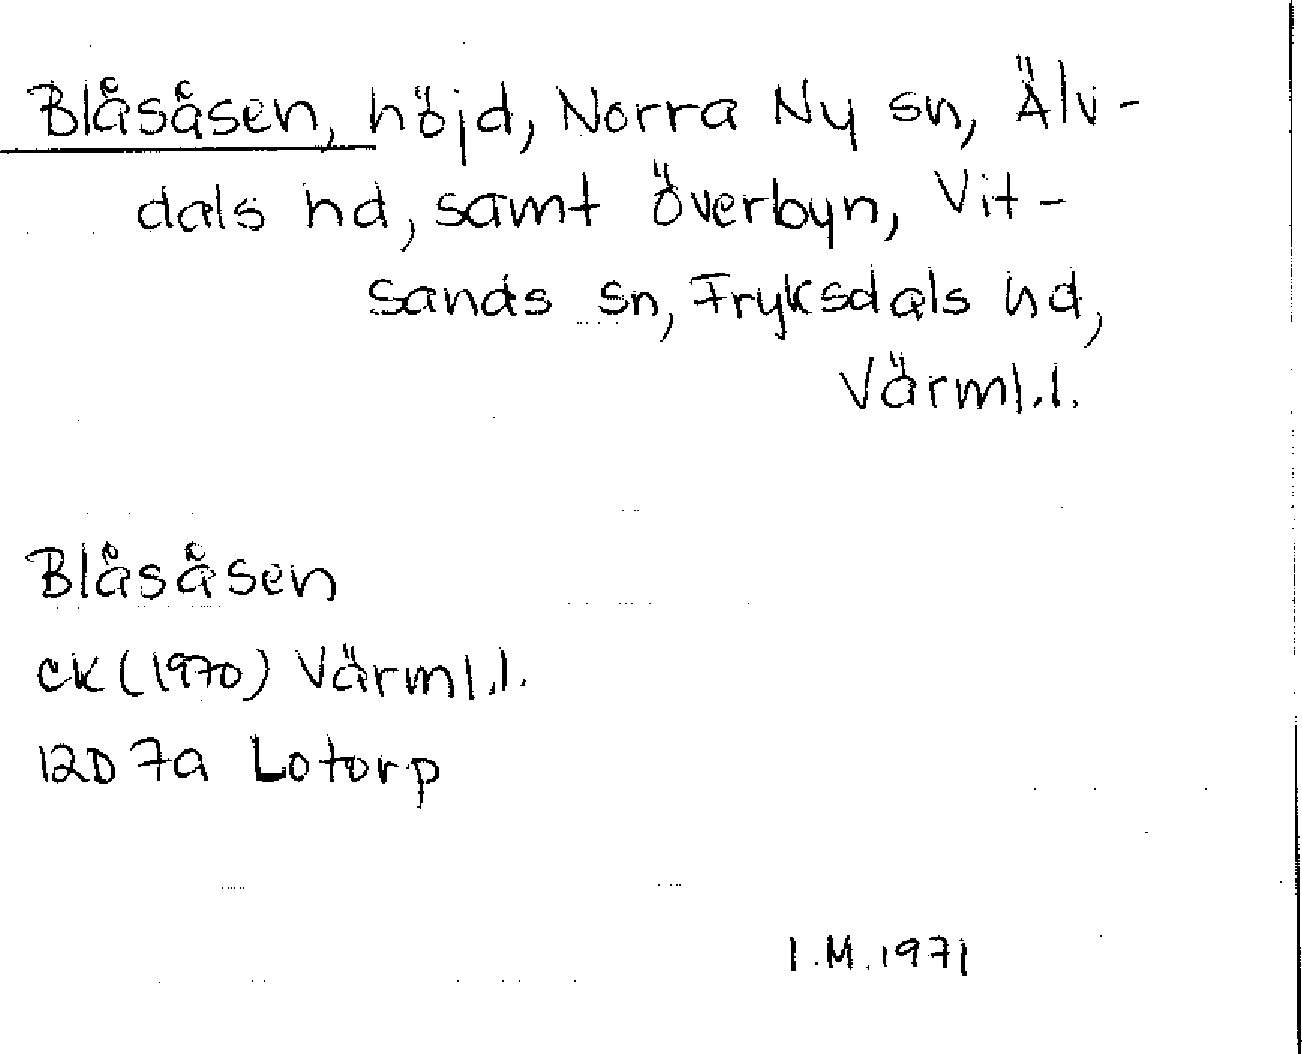 Blåsåsen, höjd, Norra Ny sn, Älv-
dals hd, samt Överbyn, Vit-
sands sn, Fryksdals hd,
Värml.l.
Blåsåsen
CK (1970) Värml.l.
12D 7a Lotorp
I.M. 1971